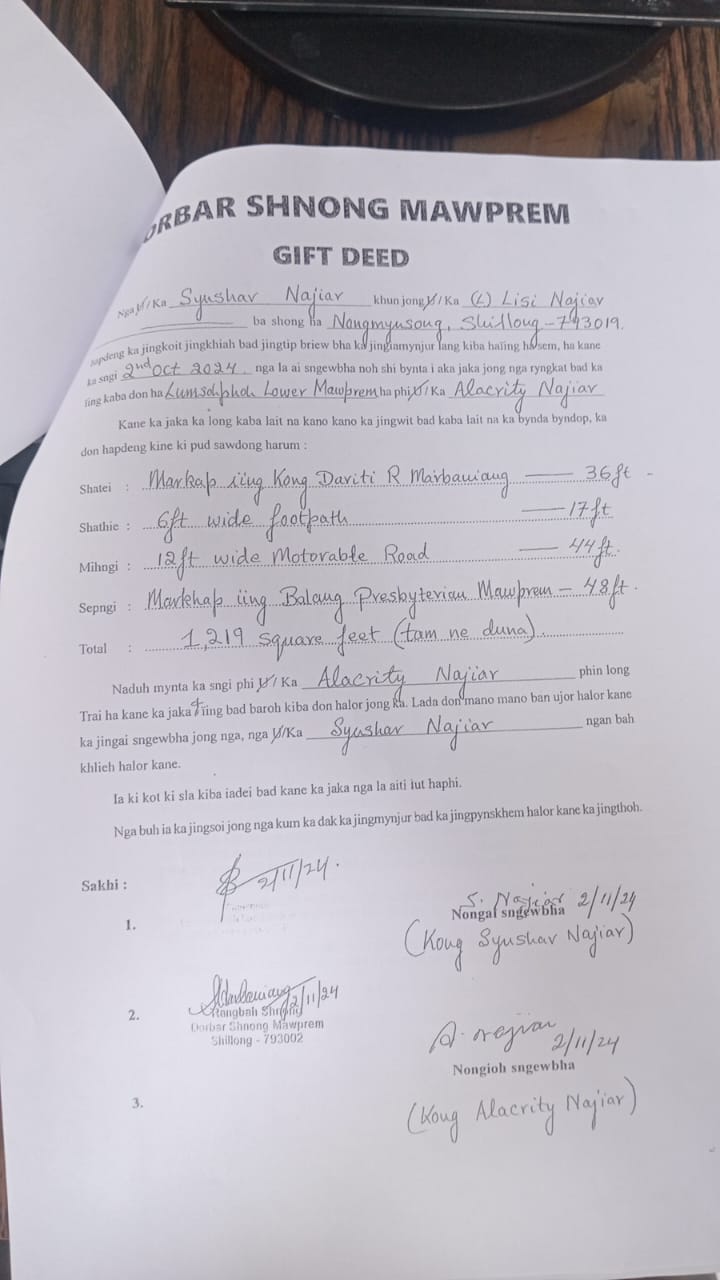 DORBAR SHNONG MAWPREM
GIFT DEED
Nga U/Ka Syushar Najiar khun jong U/Ka (L) Lisi Najiar
ba shong ha Nongmynsong, Shillong - 793019.
hapdeng ka jingkoit jingkhiah bad jingtip briew bha ka jingiamynjur lang kiba haiing hasem, ha kane
ka sngi 2nd Oct 2024. nga la ai sngewbha noh shi bynta i aka jaka jong nga ryngkat bad ka
iing kaba don ha Lumsohphoh Lower Mawprem ha phi U/Ka Alacrity Najiar
Kane ka jaka ka long kaba lait na kano kano ka jingwit bad kaba lait na ka bynda byndop, ka
don hapdeng kine ki pud sawdong harum :
Shatei : Markap iing Kong Dariti R Marbaniang — 36ft -
Shathie : 6ft wide footpath — 17ft
Mihngi : 12ft wide Motorable Road — 44ft.
Sepngi : Markhap iing Balang Presbyterian Mawprem - 48ft.
Total : 1,219 square feet (tam ne duna)
Naduh mynta ka sngi phi U/Ka Alacrity Najiar phin long
Trai ha kane ka jaka + iing bad baroh kiba don halor jong ka. Lada don mano mano ban ujor halor kane
ka jingai sngewbha jong nga, nga U/Ka Syushar Najiar ngan bah
khlieh halor kane.
Ia ki kot ki sla kiba iadei bad kane ka jaka nga la aiti lut haphi.
Nga buh ia ka jingsoi jong nga kum ka dak ka jingmynjur bad ka jingpynskhem halor kane ka jingthoh.
Sakhi :
1. 2/11/24.
S. Najiar 2/11/24
Nongai sngewbha
(Kong Syushar Najiar)
2. 2/11/24
Rangbah Shnong
Dorbar Shnong Mawprem
Shillong - 793002
A. Najiar
2/11/24
Nongioh sngewbha
3.
(Kong Alacrity Najiar)